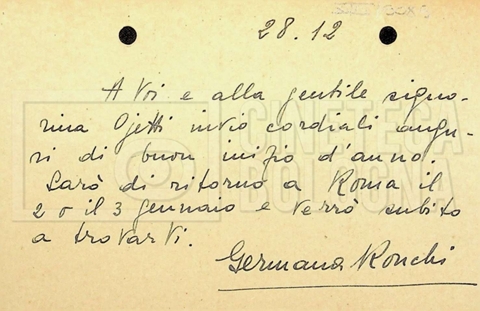 28.12
A voi e alla gentile signo-
rina Ojetti invio cordiali augu-
ri di buon inizio d'anno.
Sarò di ritorno a Roma il
2 o il 3 gennaio e verrò subito
a trovarVi.
Germana Ronchi
CINETECA
BOLOGNA